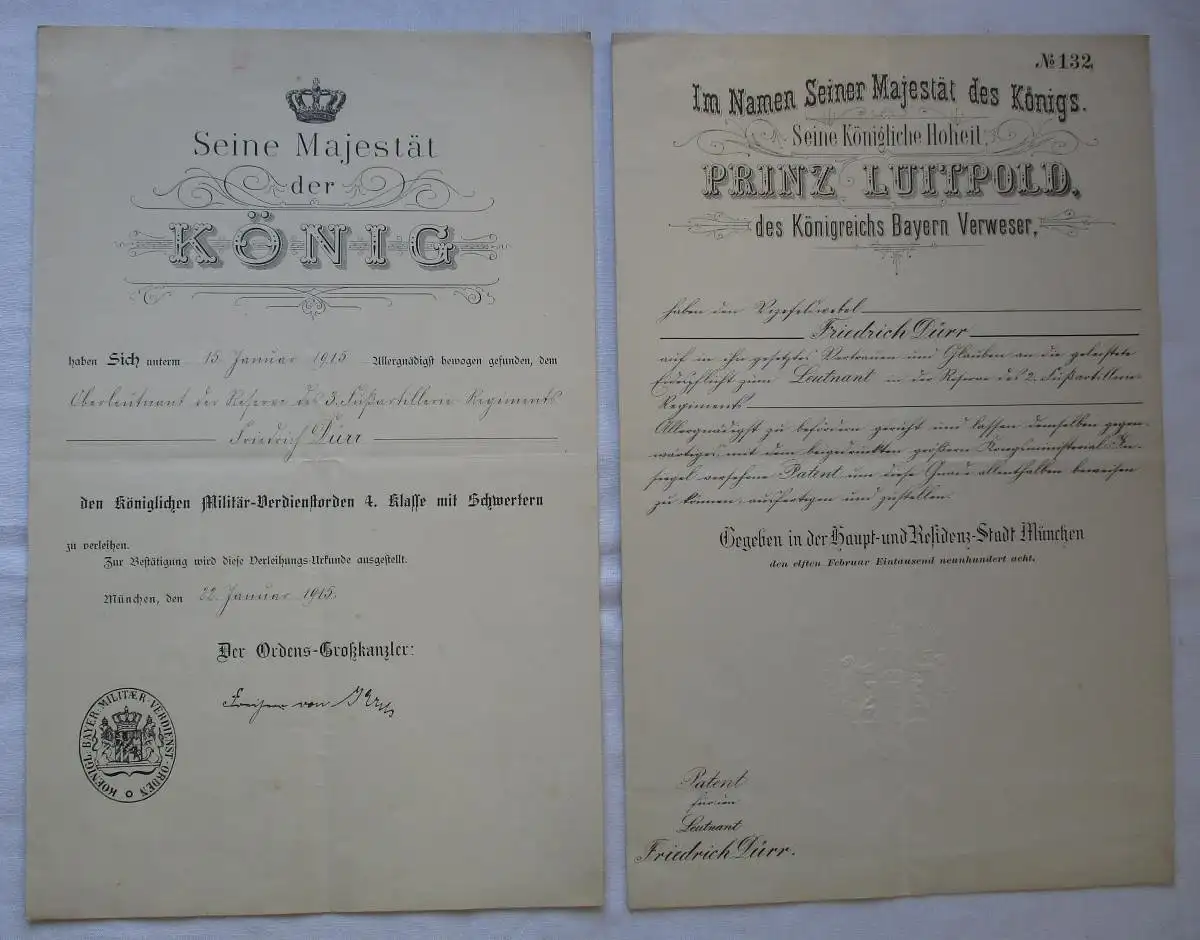 Seine Majestät
der
KÖNIG
haben Sich unterm 15 Januar 1915 Allergnädigst bewogen gefunden, dem
Oberleutnant der Reserve des 3. Fußartillerie-Regiments
Friedrich Dürr
den Königlichen Militär-Verdienstorden 4. Klasse mit Schwertern
zu verleihen.
Zur Bestätigung wird diese Verleihungs-Urkunde ausgestellt.
München, den 22. Januar 1915.
Der Ordens-Großkanzler:
Freiherr von
KOENIGL. BAYER. MILITÆR-VERDIENST-ORDEN
№ 132
Im Namen Seiner Majestät des Königs.
Seine Königliche Hoheit,
PRINZ LUITPOLD,
des Königreichs Bayern Verweser,
haben den Vizefeldwebel
Friedrich Dürr
auf in ihn gesetztes Vertrauen und Glauben an die geleistete
Eidespflicht zum Leutnant in der Reserve des 2. Fußartillerie-
Regiments
Allergnädigst zu befördern geruht und lassen demselben gegen-
wärtiges mit dem beigedruckten größern Kriegsministerial-In-
siegel versehene Patent um diese Gnade allenthalben beweisen
zu können, ausfertigen und zustellen.
Gegeben in der Haupt-und Residenz-Stadt München
den elften Februar Eintausend neunhundert acht.
Patent
für den
Leutnant
Friedrich Dürr.